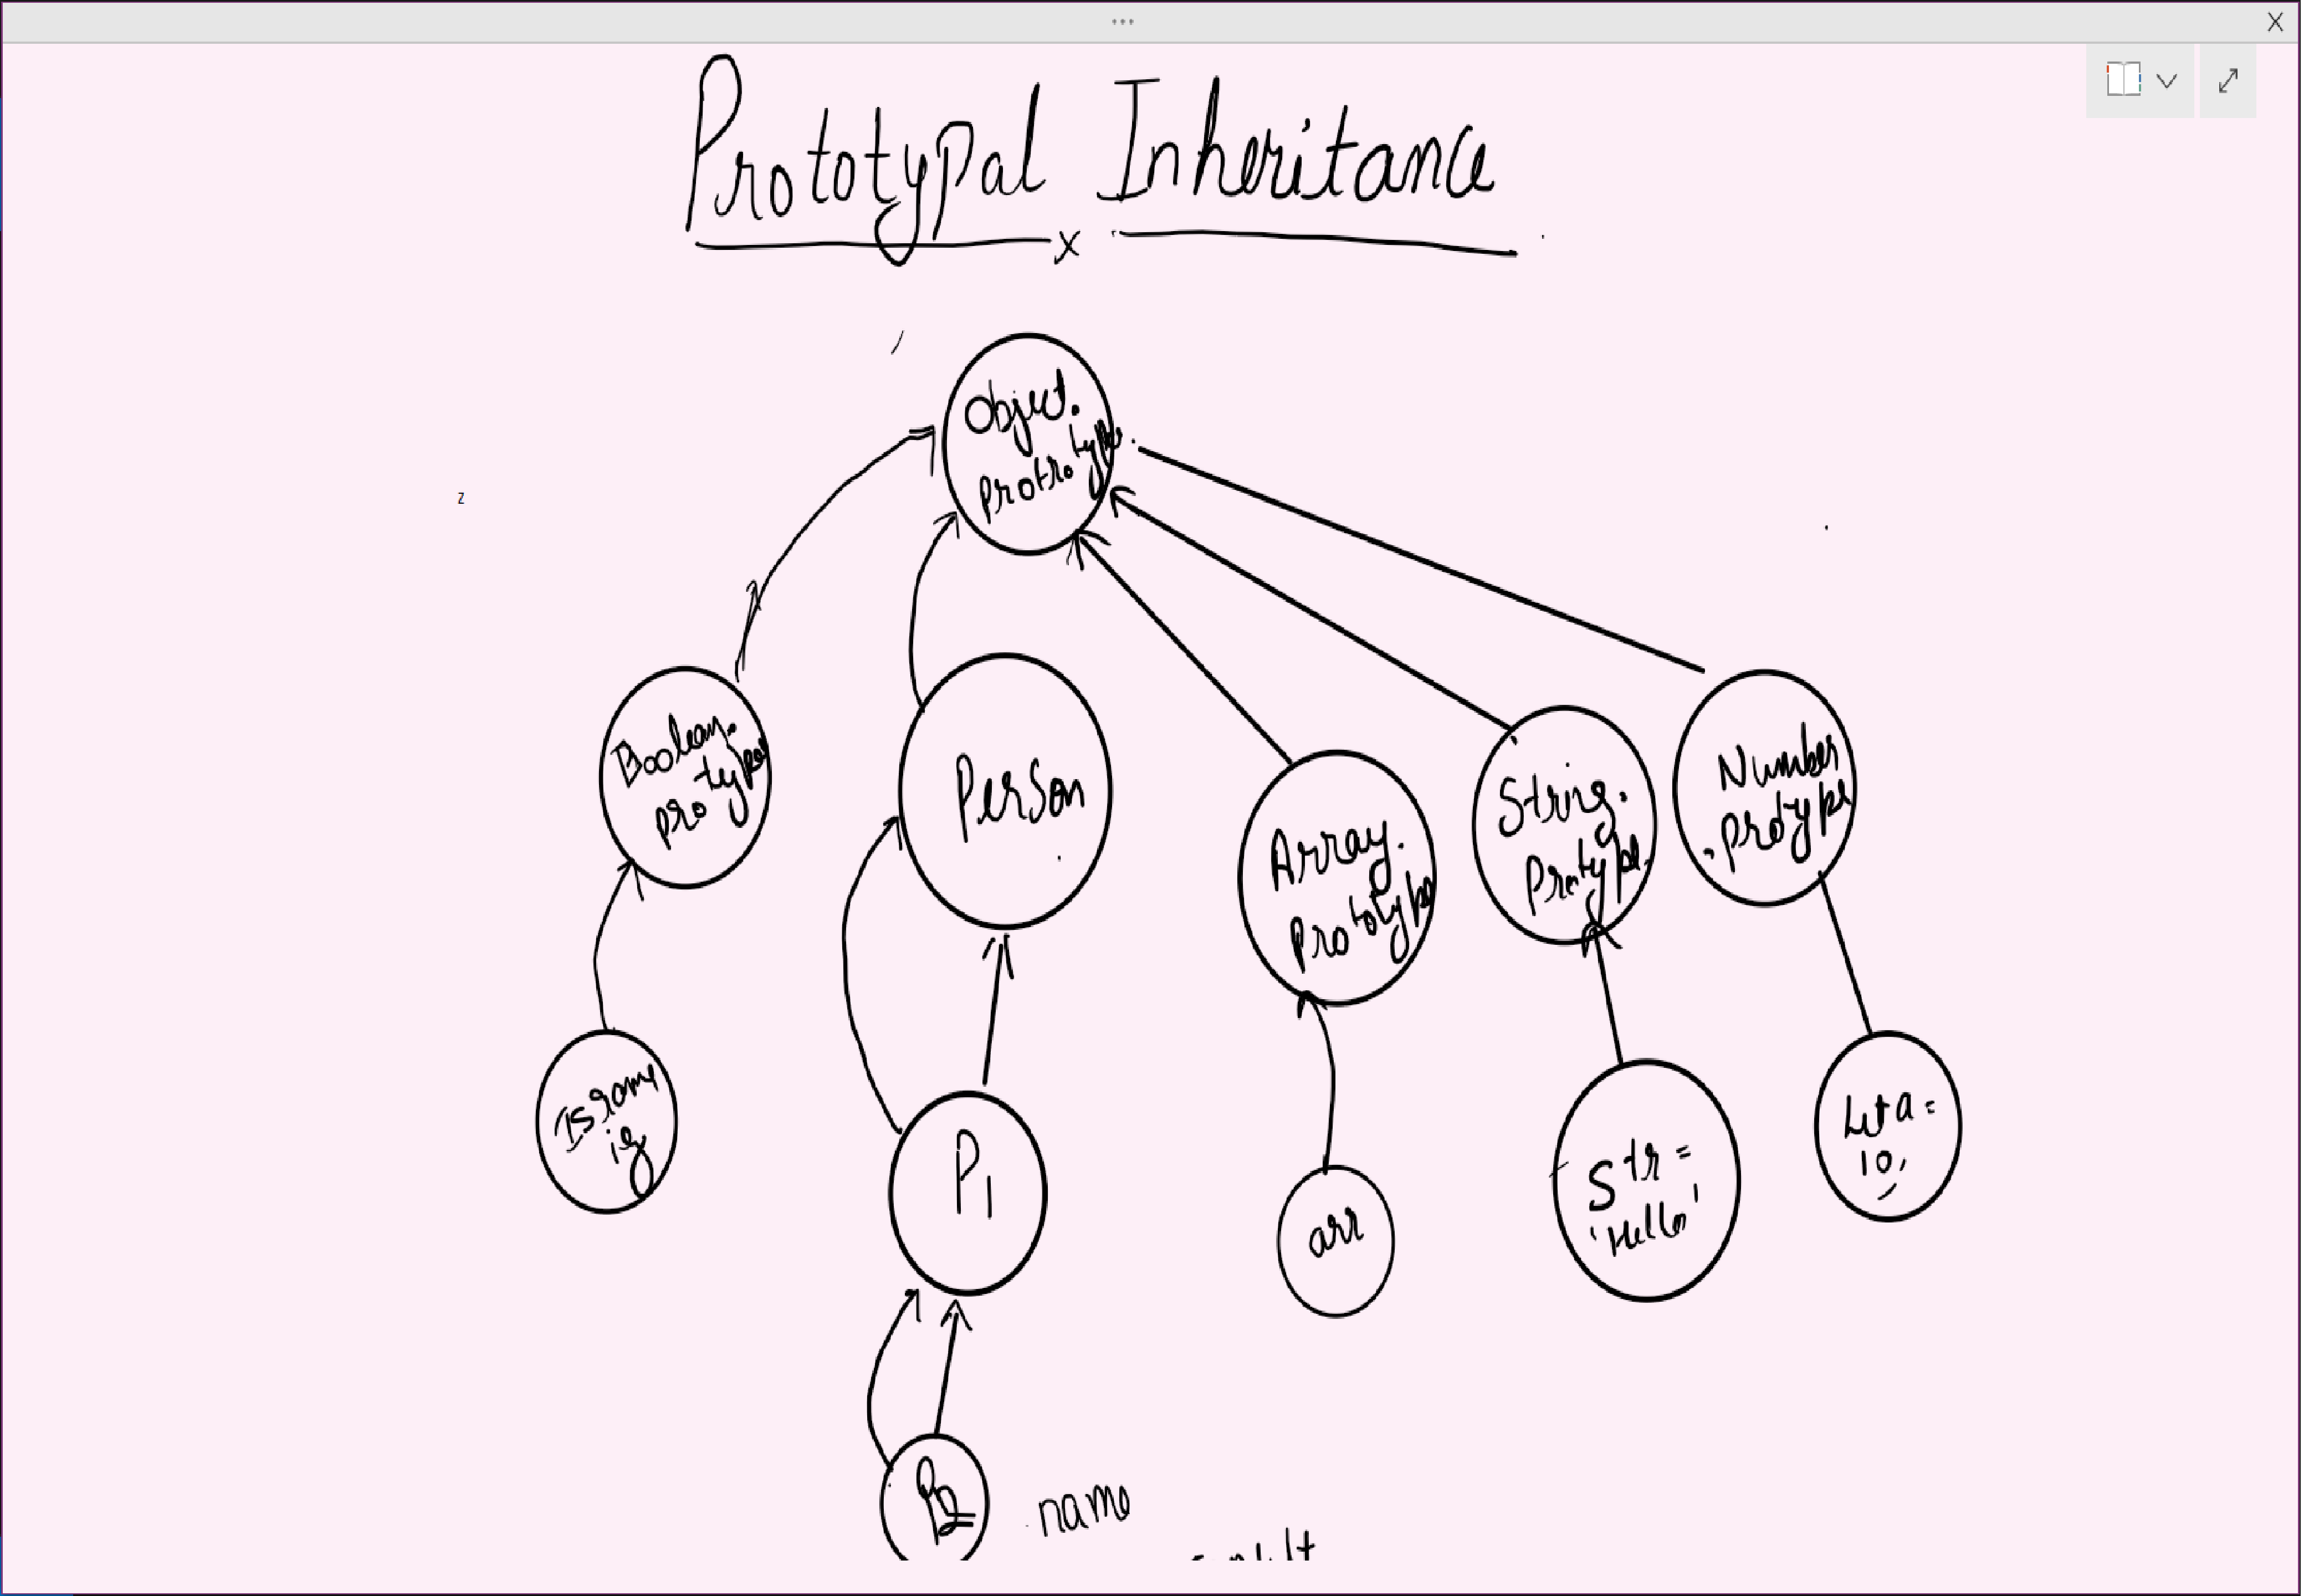 Prototypal Inheritance
x
Object.
prototype.
z
Boolean.
type
pro
Person
Array.
Prototype
String.
Prototype
Number
.prototype
isgome
P1
arr
Str =
'Hello'
let a =
10,
P2
name